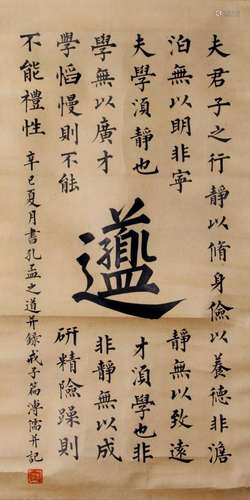 夫君子之行靜以脩身儉以養德非澹
泊無以明非寧靜無以致遠
夫學湏靜也才湏學也非
學無以廣才非靜無以成
學慆慢則不能研精險躁則
不能禮性
辛巳夏月書孔孟之道并錄戒子篇溥儒并記